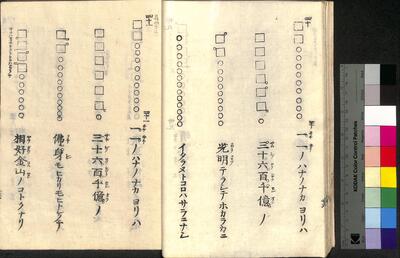 四十
一一ノハナノナカヨリハ
三十六百千億ノ
光明テラシテホカラカニ
イタラヌトコロハサラニナシ
一一ノハナノナカヨリハ
三十六百千億ノ
佛身モヒカリモヒトシクテ
相好金山ノコトクナリ
KODAK Color Control Patches